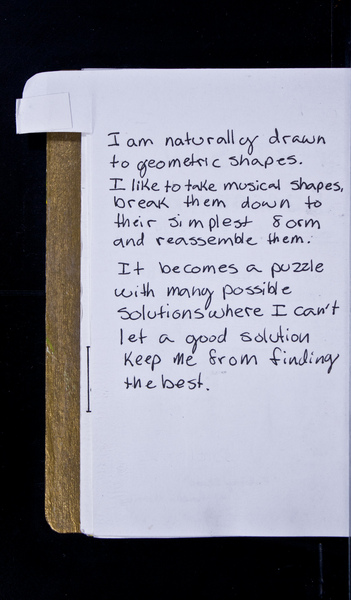 I am naturally drawn
to geometric shapes.
I like to take musical shapes,
break them down to
their simplest form
and reassemble them.
It becomes a puzzle
with many possible
solutions where I can't
let a good solution
keep me from finding
the best.